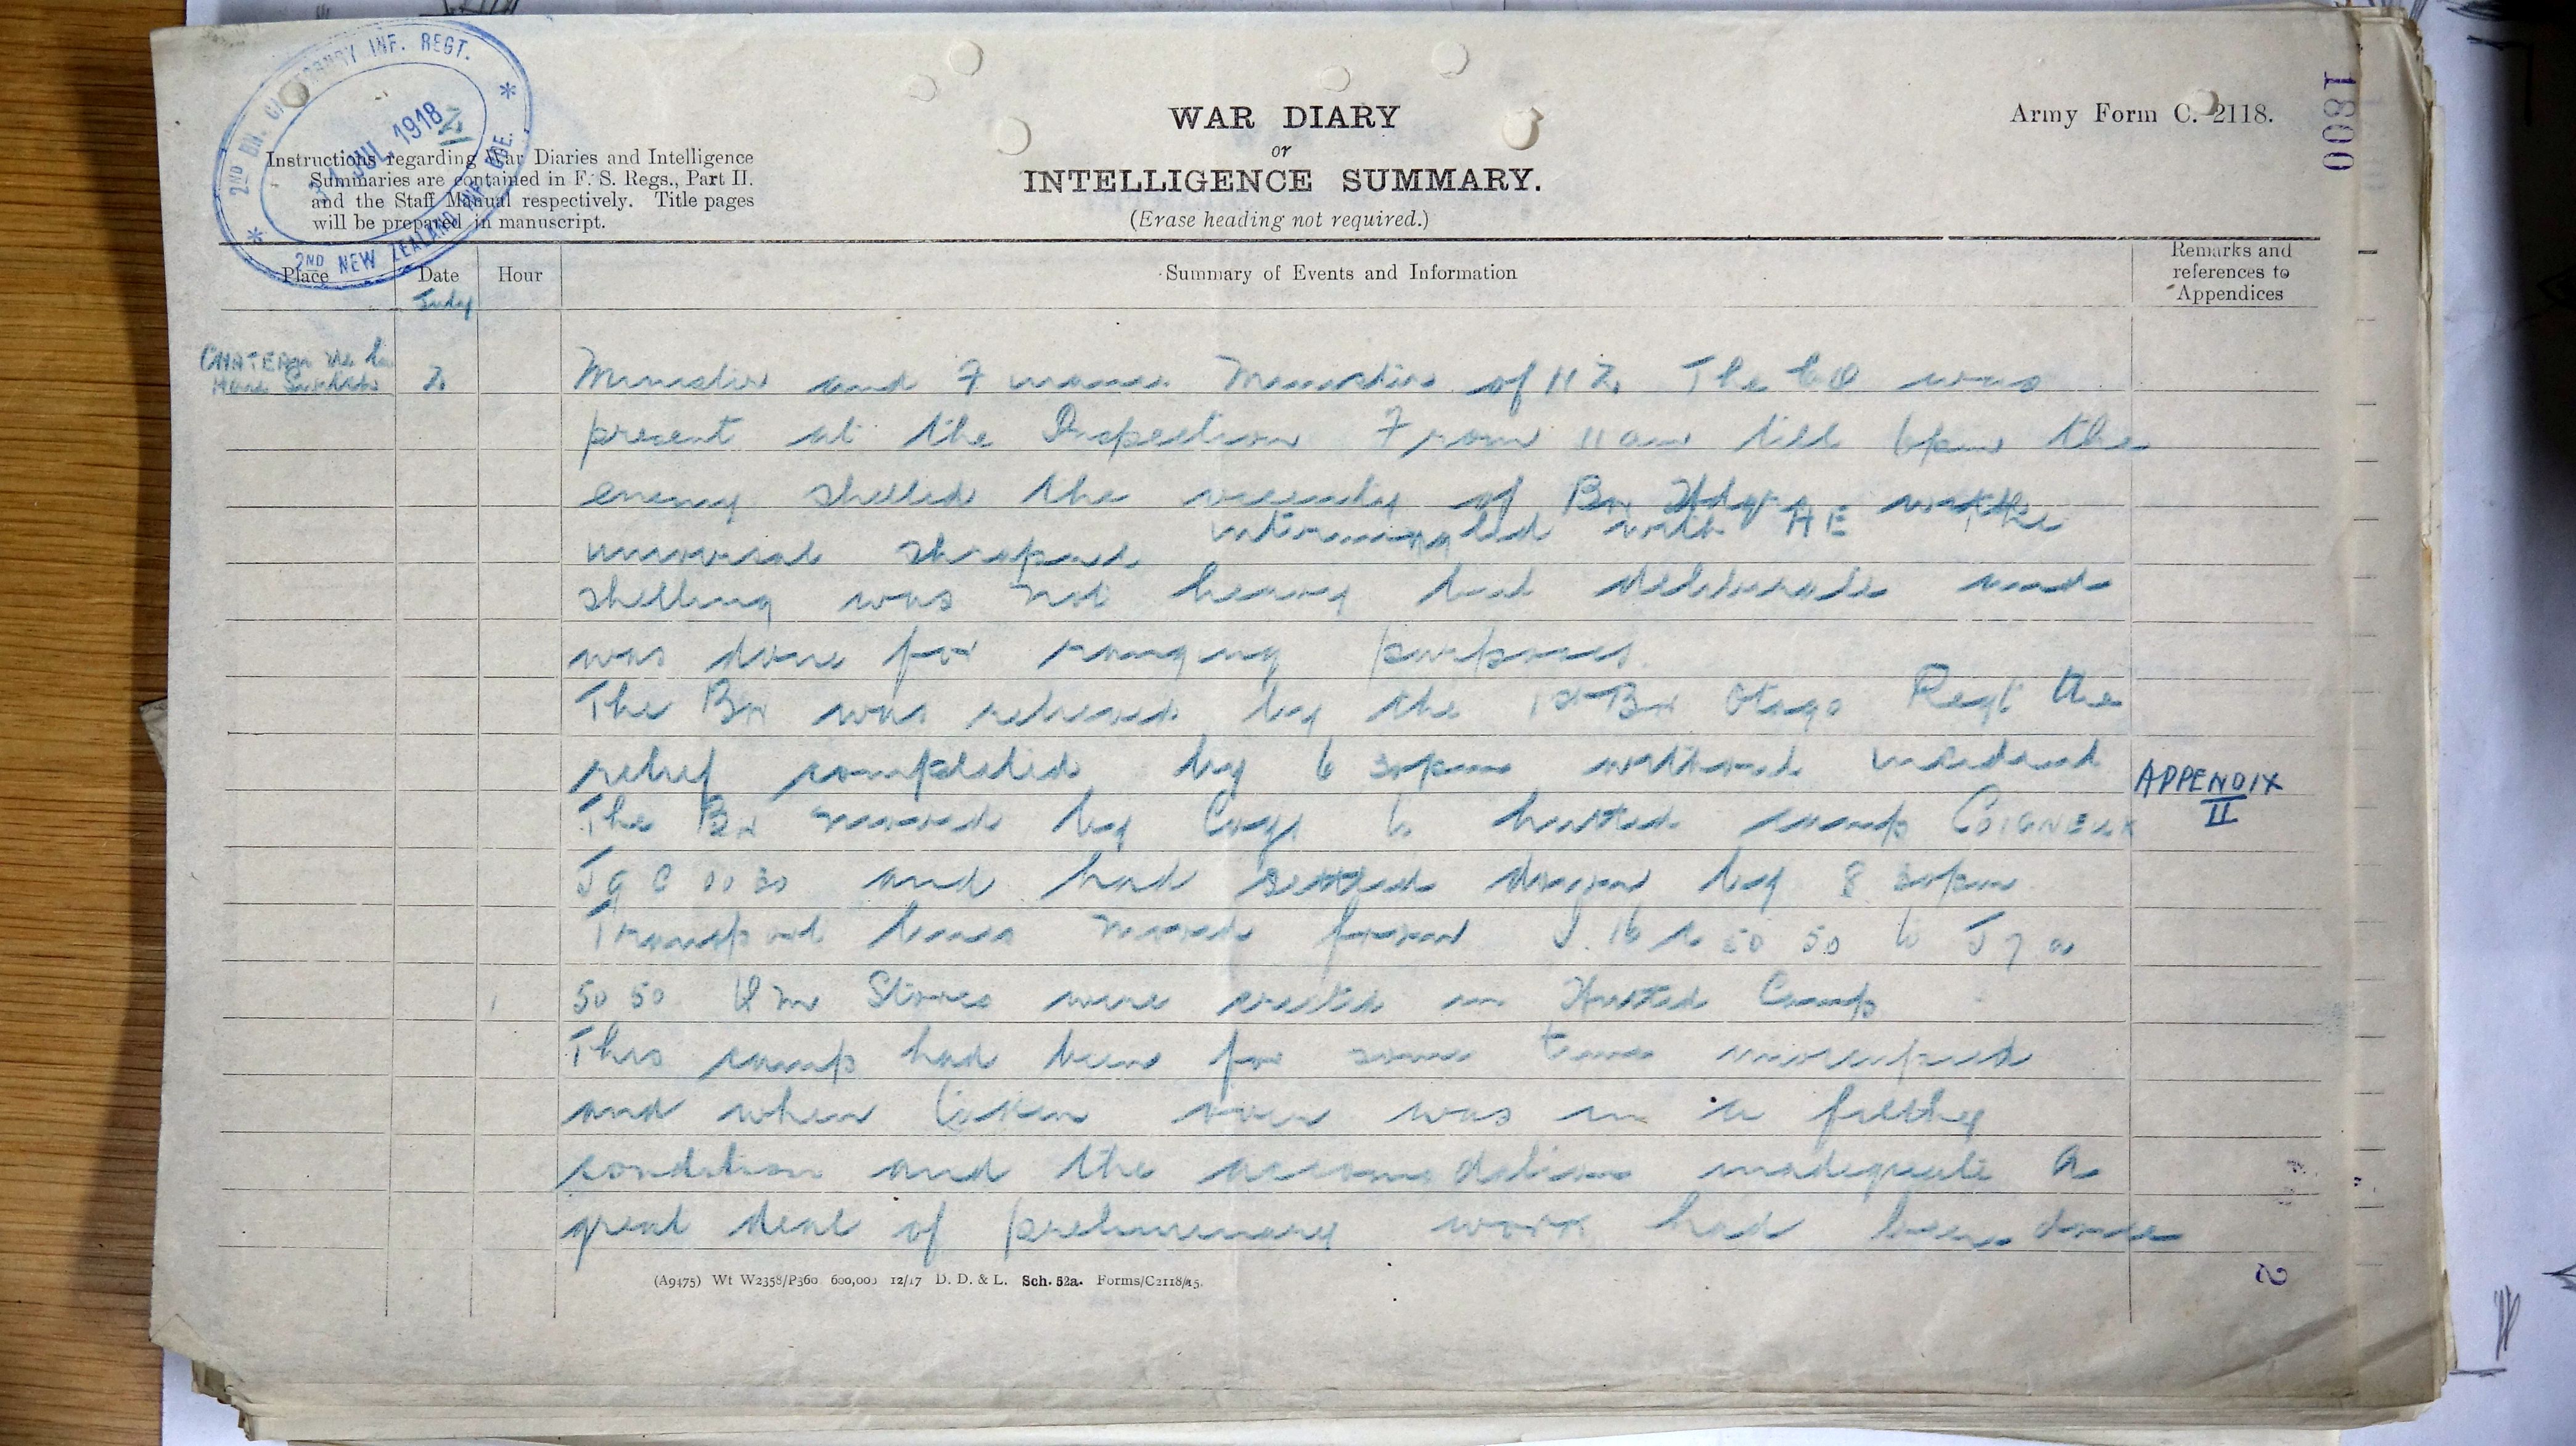 2ND BN. CANTERBURY INF. REGT.
31 JUL 1918
2ND NEW ZEALAND INF. BDE.
WAR DIARY
or
INTELLIGENCE SUMMARY.
(Erase heading not required.)
Army Form C. 2118.
1800
Instructions regarding War Diaries and Intelligence
Summaries are contained in F. S. Regs., Part II.
and the Staff Manual respectively. Title pages
will be prepared in manuscript.
Place Date Hour Summary of Events and Information Remarks and
references to
Appendices
July
2 Minister and Finance Minister of NZ. The CO was
present at the Inspection From 11 am till 6pm the
enemy shelled the vicinity of Bn Hdqrs with
universal shrapnel intermingled with HE the
shelling was not heavy but deliberate and
was done for ranging purposes.
The Bn was relieved by the 1st Bn Otago Regt the
relief completed by 6 30pm without incident
The Bn moved by Coys to hutted camp COIGNEUX
APPENDIX
II
J 9 C 00 30 and had settled down by 8 30pm
Transport lines moved from J. 16 50 50 to J 9 a
50 50 QM Stores were erected in Hutted Camp
This camp had been for some time unoccupied
and when taken over was in a filthy
condition and the accommodation inadequate A
great deal of preliminary work had been done
(A9475) Wt W2358/P360 600,000 12/17 D. D. & L. Sch. 52a. Forms/C2118/15.
2